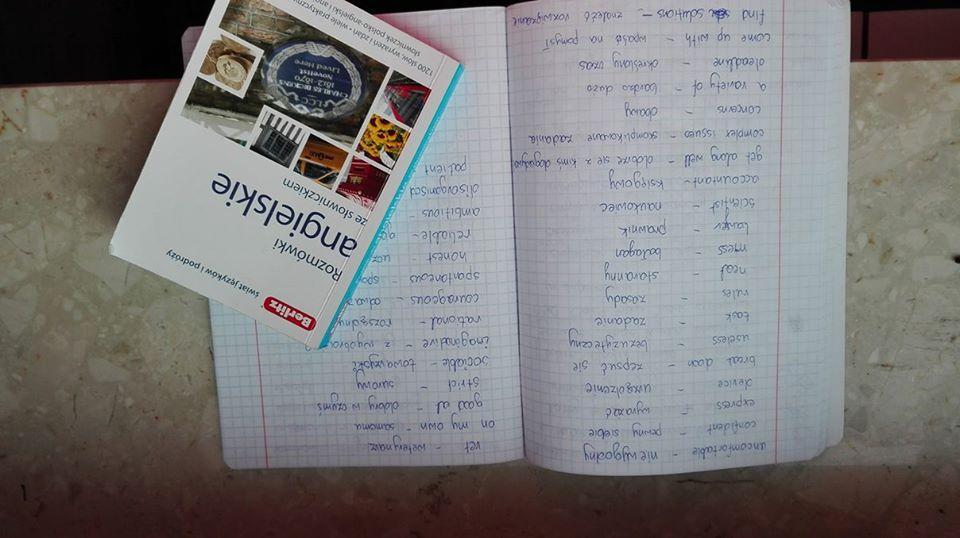 uncomfortable - niewygodny
confident - pewny siebie
express - wyrażać
device - urządzenie
break down - zepsuć się
useless - bezużyteczny
task - zadanie
rules - zasady
neat - staranny
mess - bałagan
lawyer - prawnik
scientist - naukowiec
accountant - księgowy
get along well - dobrze się z kimś dogadywać
complex issues - skomplikowane zadania
concerns - obawy
a variety of - bardzo dużo
deadline - określony czas
come up with - wpaść na pomysł
find solutions - znaleźć rozwiązanie
vet - weterynarz
on my own - samemu
good at - dobry w czymś
strict - surowy
sociable - towarzyski
imaginative - z wyobraź
rational - rozsądny
courageous - odważ
spontaneous - spon
honest - ucz
reliable -
ambitious -
disorganised
patient
Berlitz
świat języków i podróży
Rozmówki
angielskie
ze słowniczkiem
LCC
CHARLES DICKENS
1812-1870
Novelist
Lived Here
1200 słów, wyrażeń i zdań • wiele praktycznych
słowniczek polsko-angielski i ang